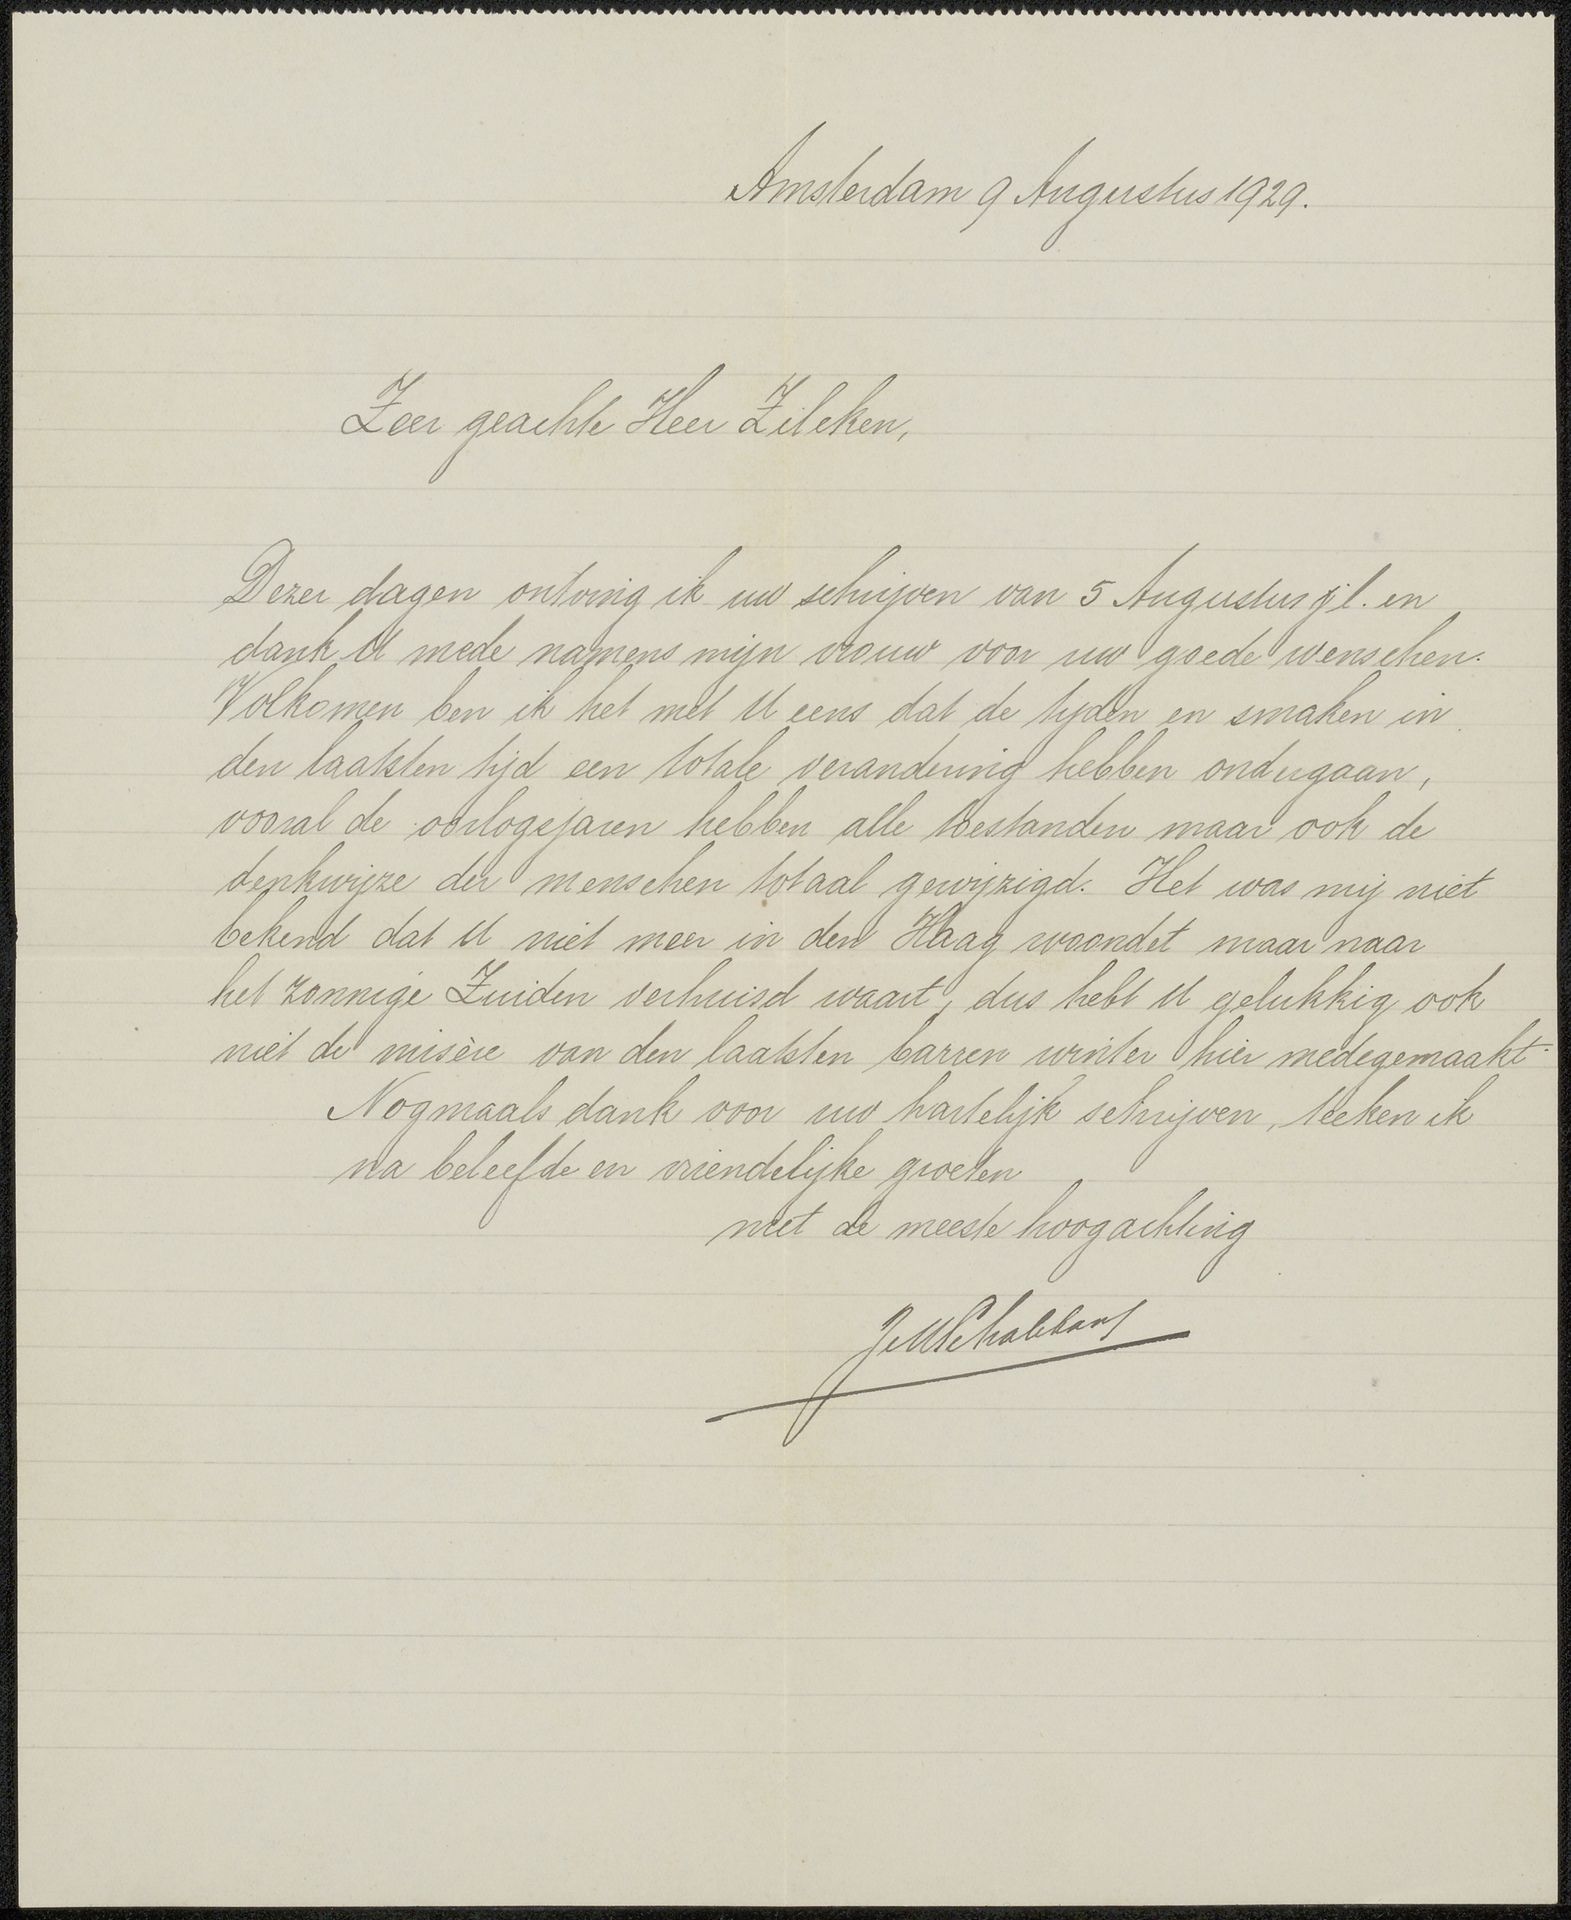 Amsterdam 9 Augustus 1929.
Zeer geachte Heer Zilcken,
Dezer dagen ontving ik uw schrijven van 5 Augustus j.l. en
dank U mede namens mijn vrouw voor uw goede wenschen.
Volkomen ben ik het met U eens dat de tijden en smaken in
den laatsten tijd een totale verandering hebben ondergaan,
vooral de oorlogsjaren hebben alle toestanden maar ook de
denkwijze der menschen totaal gewijzigd. Het was mij niet
bekend dat U niet meer in den Haag woondet maar naar
het zonnige Zuiden verhuisd waart, dus hebt U gelukkig ook
niet de misère van den laatsten barren winter hier medegemaakt.
Nogmaals dank voor uw hartelijk schrijven, teeken ik
na beleefde en vriendelijke groeten
met de meeste hoogachting